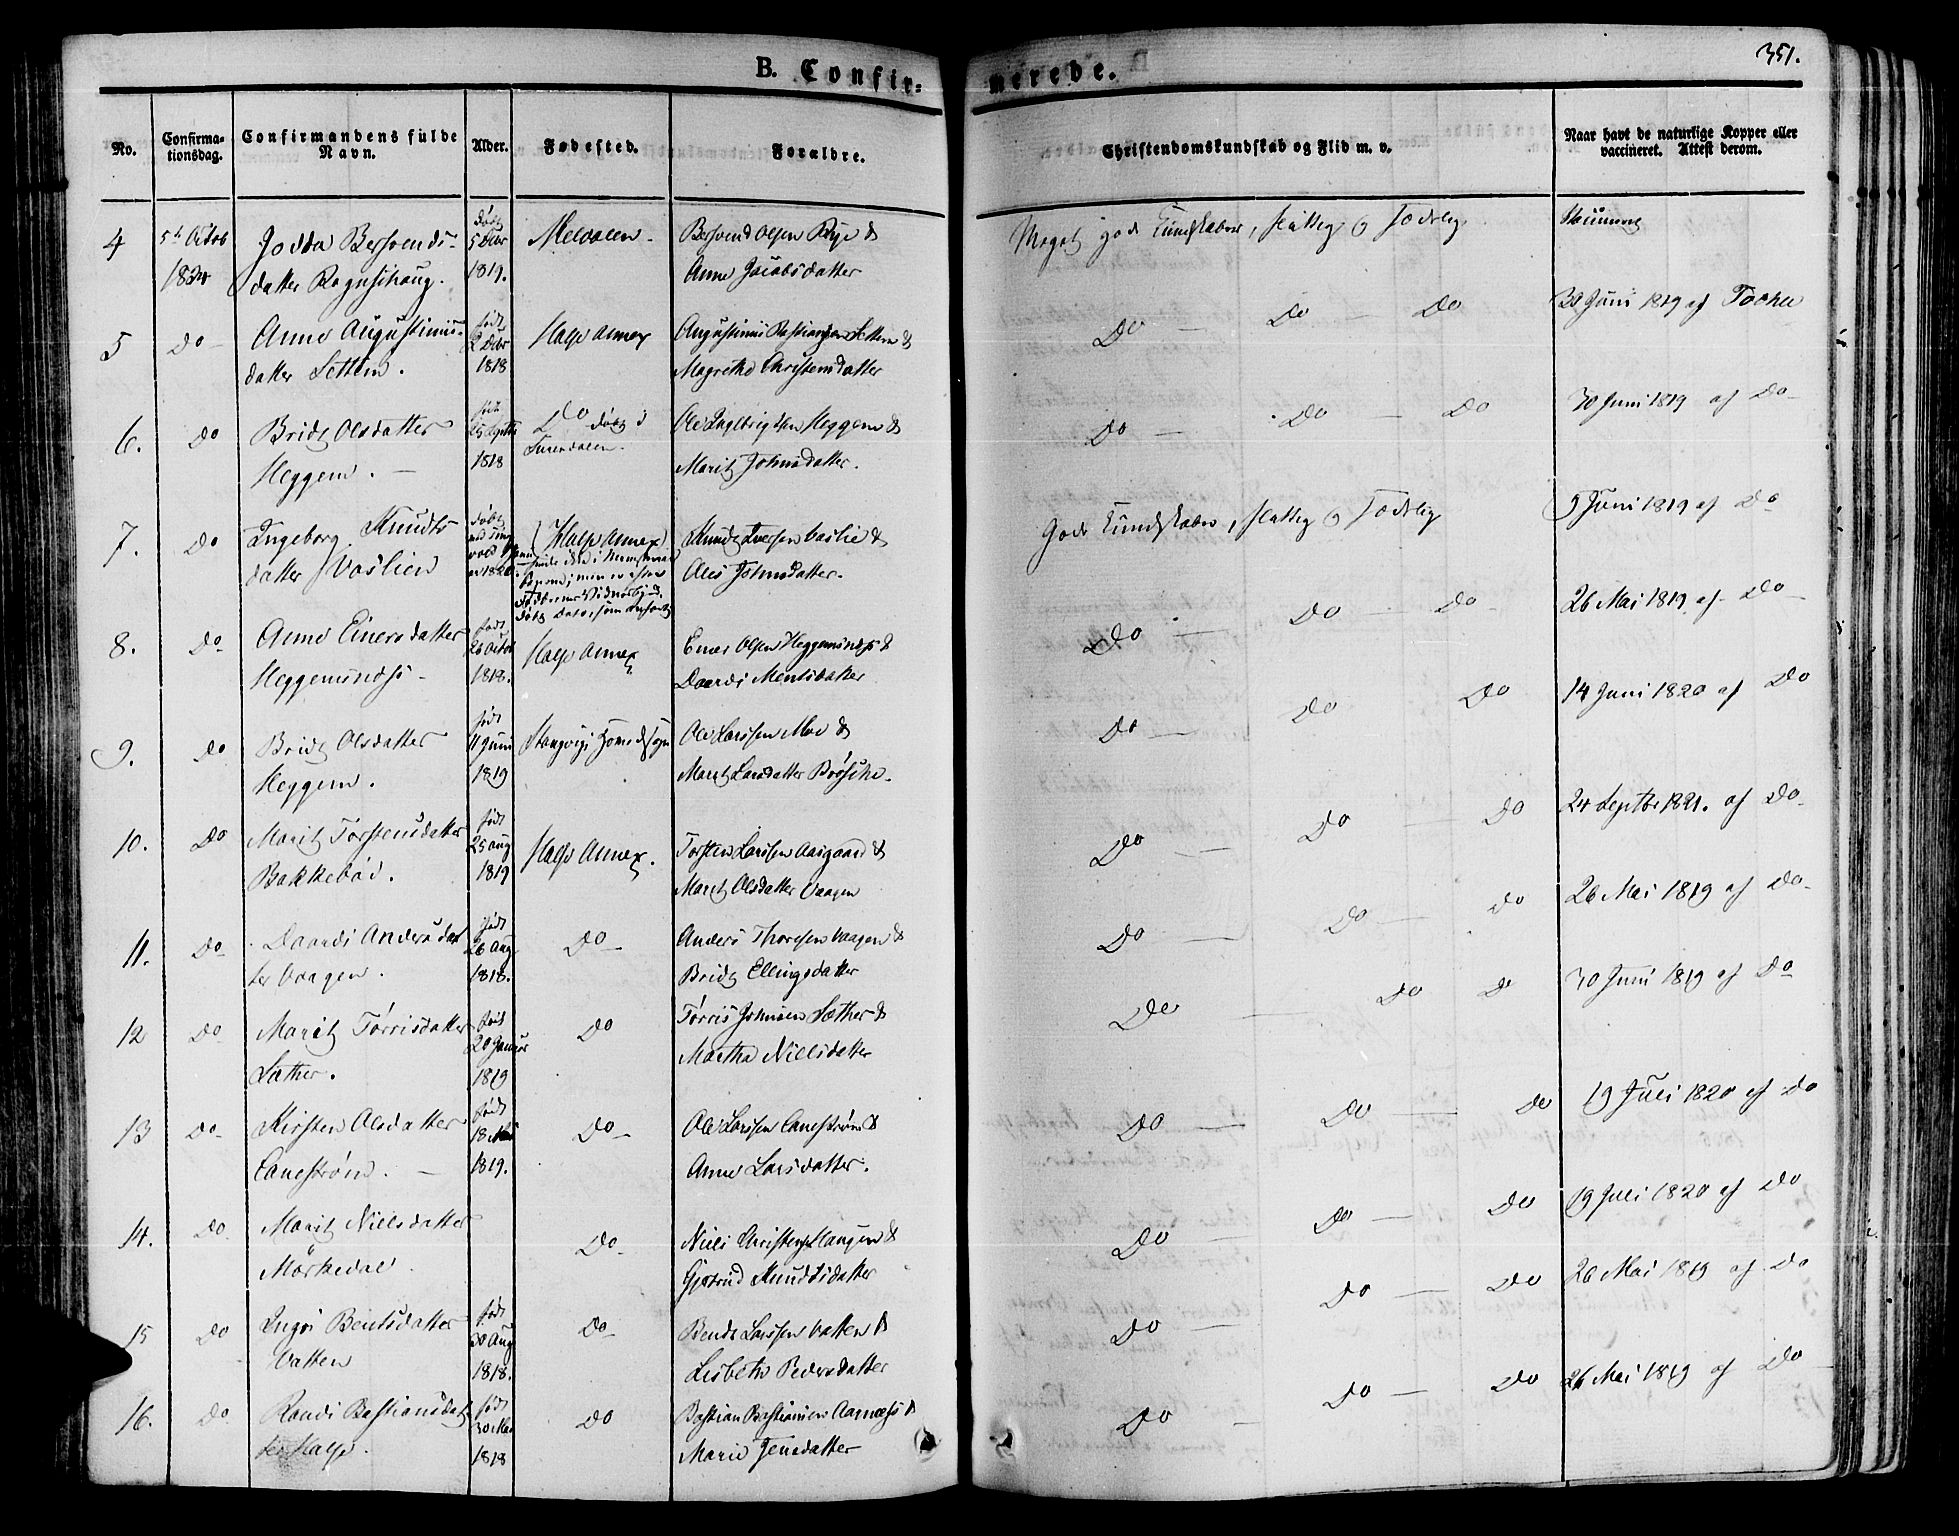 351.
B. Confir-
merede.
No.
Confirma-
tionsdag.
Confirmandens fulde
Navn.
Alder.
Fødested.
Forældre.
Christendomskundskab og Flid m. v.
Naar havt de naturlige Kopper eller
vaccineret. Attest derom.
4
5te Octob
1834
Bersvends-
datter
døbt
1819.
Meldalen.
Bersvend Olsen Rye &
Anne Jacobsdatter
Meget gode Kundskaber, flittig og Sædelig
5
Do
Anne Augustinus-
datter Settem.
født
2 Dbr
1818
Halse Annex
Augustinus Bastiansen Settem &
Magrethe Christensdatter
Do — Do — Do
30 Juni 1819 af
6.
Do
Bridt Olsdatter
Heggem.
født
25 Septbr
1818
Do døbt i
Surendalen.
Ole Ingebrigtsen Heggem &
Marit Johnsdatter.
Do — Do — Do
30 Juni 1819 af Do
7.
Do
Ingeborg Knudts
datter Vaslien
døbt
1820
(Halse Annex)
Knudt Iversen Vaslie &
Ales Johnsdatter.
Gode Kundskaber, flittig og Sædelig
9 Juni 1819 af Do
8.
Do
Anne Einersdatter
Heggemundsø
født
26 Octob
1818.
Halse Annex
Einer Olsen Heggemundsø &
Daardi Mentsdatter
Do — Do — Do
26 Mai 1819 af Do
9.
Do
Bridt Olsdatter
Heggem.
født
11 Juni
1819
Stangvigs Hovedsogn
Ole Larssen Moe &
Marit Larsdatter Brøske.
Do — Do Do
14 Juni 1820 af Do
10.
Do
Marit Torstensdatter
Bakkebød.
født
25 Aug
1819
Halse Annex.
Torsten Larssen Aasgaard &
Marit Olsdatter Vaagen
Do — Do — Do
24 Septbr 1821. af Do
11.
Do
Daardi Andersdat
ter Vaagen.
født
26 Aug
1818.
Do
Anders Thoresen Vaagen &
Bridt Ellingsdatter
Do — Do — Do
26 Mai 1819 af Do
12
Do
Marit Tørrisdatter
Sæther.
født
20 Januar
1819
Do
Tørris Johnsen Sæther &
Martha Nielsdatter
Do — Do Do
30 Juni 1819 af Do
13
Do
Kirsten Olsdatter
Canestrøm.
født
18
1819.
Do
Ole Larssen Canestrøm &
Anne Larsdatter.
Do — Do — Do
19 Juli 1820 af Do
14.
Do
Marit Nielsdatter
Mørkedal
Do
Niels Christens Haugen &
Gjertrud Knudtsdatter
Do — Do — Do
19 Juli 1820 af Do
15
Do
Bentsdatter
Vatten
født
30 Aug
1818.
Do
Bendt Larssen Vatten &
Lisbeth Pedersdatter
Do — Do — Do
26 Mai 1819 af Do
16.
Do
Randi Bastiansdat
ter Halse.
født
30 Mai
1818
Do
Bastian Bastiansen Aarnæss &
Marie Jensdatter
Do — Do — Do
26 Mai 1819 af Do